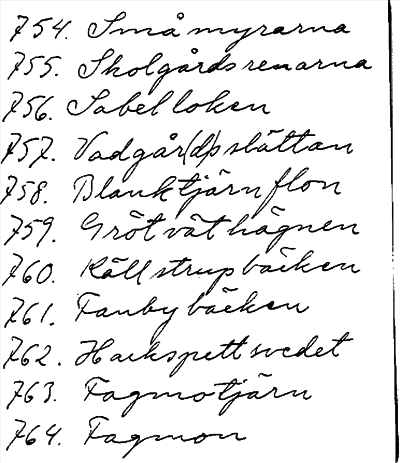 754. Småmyrarna
755. Skolgårdsrenarna
756. Sabelloken
757. Vadgår(d)slättan
758. Blanktjärnflon
759. Grötväthägnen
760. Källstrupbäcken
761. Fanbybäcken
762. Hackspettsvedet
763. Fagmotjärn
764. Fagmon